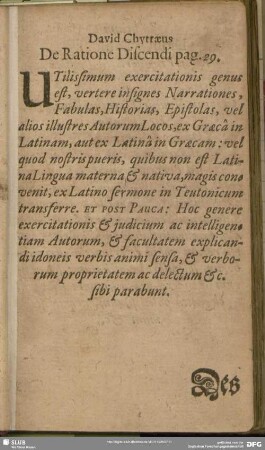 David Chytræus
De Ratione Discendi pag. 29.
UTilissimum exercitationis genus
est, vertere insignes Narrationes,
Fabulas, Historias, Epistolas, vel
alios illustres Autorum Locos, ex Græcâ in
Latinam, aut ex Latinâ in Græcam: vel
quod nostris pueris, quibus non est Lati-
na Lingua materna & nativa, magis con-
venit, ex Latino sermone in Teutonicum
transferre. ET POST PAUCA: Hoc genere
exercitationis & judicium ac intelligen-
tiam Autorum, & facultatem explican-
di idoneis verbis animi sensa, & verbo-
rum proprietatem ac delectum &c.
sibi parabunt.
Des
SLUB
DFG